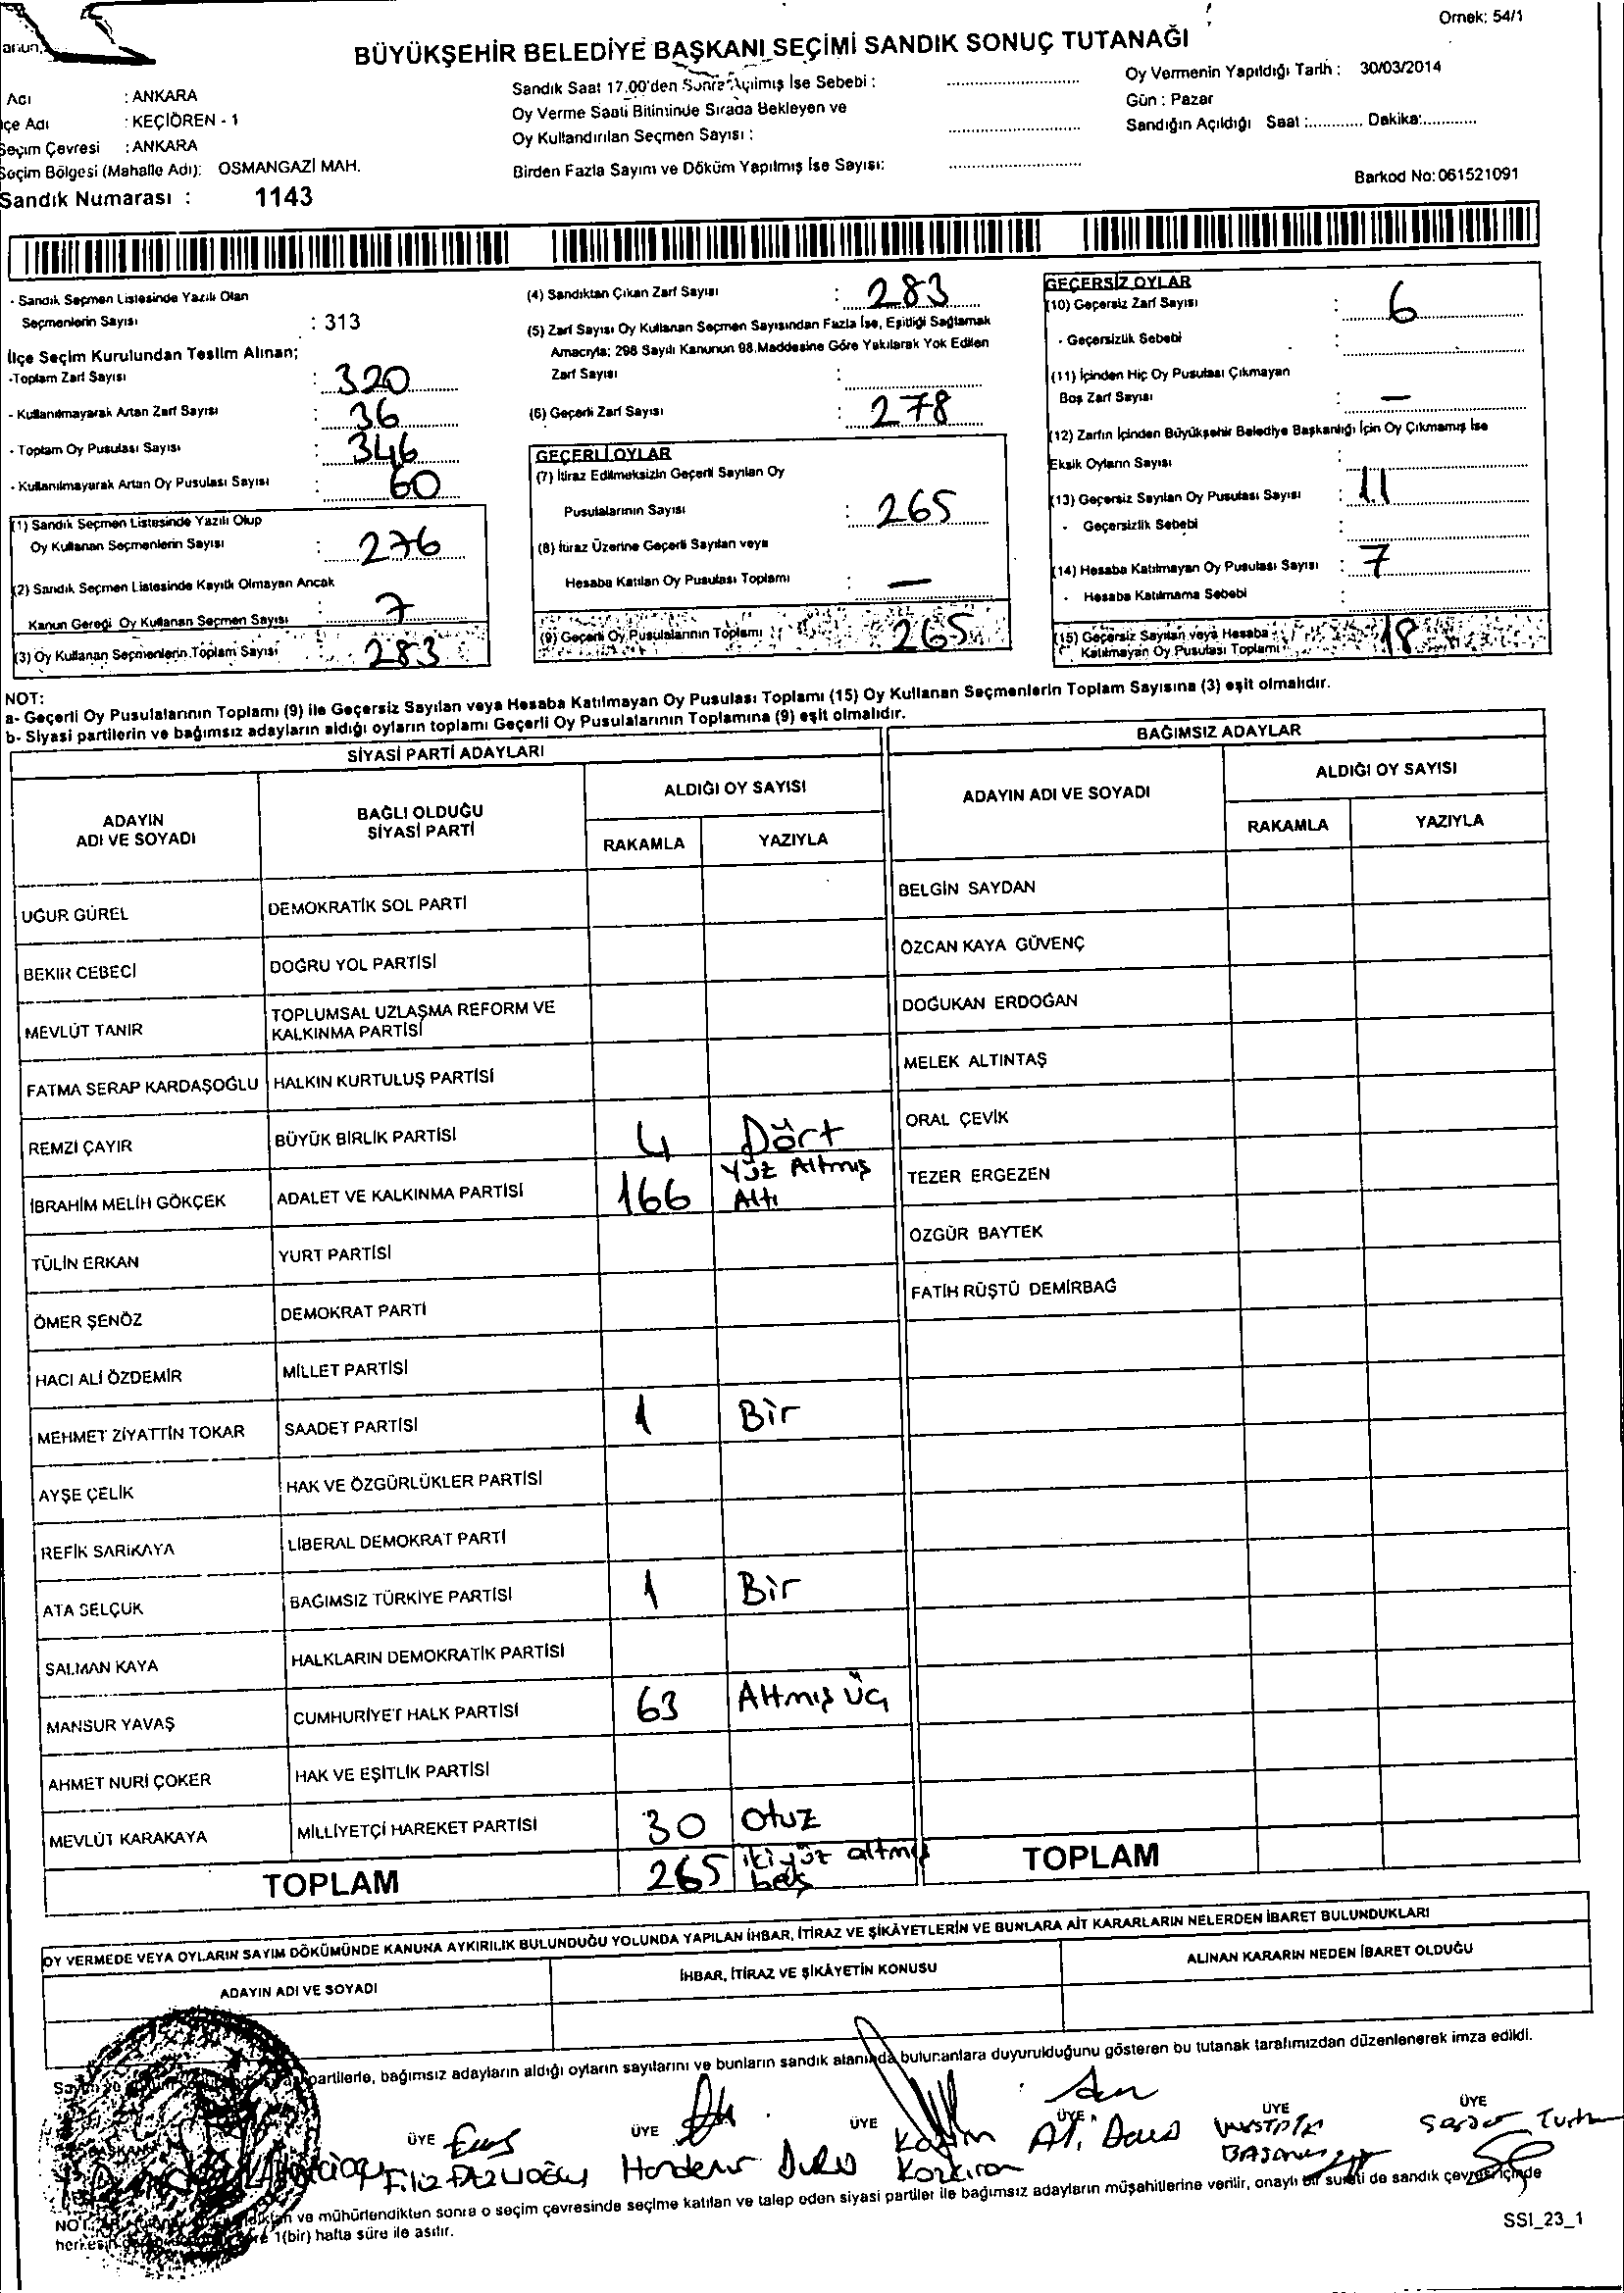 Örnek: 54/1
BÜYÜKŞEHİR BELEDİYE BAŞKANI SEÇİMİ SANDIK SONUÇ TUTANAĞI
Adı : ANKARA
çe Adı : KEÇİÖREN - 1
Seçim Çevresi : ANKARA
Seçim Bölgesi (Mahalle Adı): OSMANGAZİ MAH.
Sandık Numarası : 1143
Sandık Saat 17.00'den Sonra Açılmış İse Sebebi :
Oy Verme Saati Bitiminde Sırada Bekleyen ve
Oy Kullandırılan Seçmen Sayısı :
Birden Fazla Sayım ve Döküm Yapılmış İse Sayısı:
Oy Vermenin Yapıldığı Tarih : 30/03/2014
Gün : Pazar
Sandığın Açıldığı Saat :............ Dakika:............
Barkod No: 061521091
- Sandık Seçmen Listesinde Yazılı Olan
Seçmenlerin Sayısı : 313
İlçe Seçim Kurulundan Teslim Alınan;
-Toplam Zarf Sayısı : 320
- Kullanılmayarak Artan Zarf Sayısı : 36
- Toplam Oy Pusulası Sayısı : 346
- Kullanılmayarak Artan Oy Pusulası Sayısı : 60
(1) Sandık Seçmen Listesinde Yazılı Olup
Oy Kullanan Seçmenlerin Sayısı : 276
(2) Sandık Seçmen Listesinde Kayıtlı Olmayan Ancak
Kanun Gereği Oy Kullanan Seçmen Sayısı : 7
(3) Oy Kullanan Seçmenlerin Toplam Sayısı : 283
(4) Sandıktan Çıkan Zarf Sayısı : 283
(5) Zarf Sayısı Oy Kullanan Seçmen Sayısından Fazla İse, Eşitliği Sağlamak
Amacıyla; 298 Sayılı Kanunun 98.Maddesine Göre Yakılarak Yok Edilen
Zarf Sayısı :
(6) Geçerli Zarf Sayısı : 278
GEÇERLİ OYLAR
(7) İtiraz Edilmeksizin Geçerli Sayılan Oy
Pusulalarının Sayısı : 265
(8) İtiraz Üzerine Geçerli Sayılan veya
Hesaba Katılan Oy Pusulası Toplamı : —
(9) Geçerli Oy Pusulalarının Toplamı : 265
GEÇERSİZ OYLAR
(10) Geçersiz Zarf Sayısı : 6
- Geçersizlik Sebebi :
(11) İçinden Hiç Oy Pusulası Çıkmayan
Boş Zarf Sayısı : —
(12) Zarfın İçinden Büyükşehir Belediye Başkanlığı İçin Oy Çıkmamış İse
Eksik Oyların Sayısı :
(13) Geçersiz Sayılan Oy Pusulası Sayısı : 11
- Geçersizlik Sebebi :
(14) Hesaba Katılmayan Oy Pusulası Sayısı : 7
- Hesaba Katılmama Sebebi :
(15) Geçersiz Sayılan veya Hesaba
Katılmayan Oy Pusulası Toplamı : 18
NOT:
a- Geçerli Oy Pusulalarının Toplamı (9) ile Geçersiz Sayılan veya Hesaba Katılmayan Oy Pusulası Toplamı (15) Oy Kullanan Seçmenlerin Toplam Sayısına (3) eşit olmalıdır.
b- Siyasi partilerin ve bağımsız adayların aldığı oyların toplamı Geçerli Oy Pusulalarının Toplamına (9) eşit olmalıdır.
SİYASİ PARTİ ADAYLARI
ADAYIN
ADI VE SOYADI
BAĞLI OLDUĞU
SİYASİ PARTİ
ALDIĞI OY SAYISI
RAKAMLA YAZIYLA
UĞUR GÜREL DEMOKRATİK SOL PARTİ
BEKİR CEBECİ DOĞRU YOL PARTİSİ
MEVLÜT TANIR TOPLUMSAL UZLAŞMA REFORM VE
KALKINMA PARTİSİ
FATMA SERAP KARDAŞOĞLU HALKIN KURTULUŞ PARTİSİ
REMZİ ÇAYIR BÜYÜK BİRLİK PARTİSİ 4 Dört
İBRAHİM MELİH GÖKÇEK ADALET VE KALKINMA PARTİSİ 166 Yüz Altmış
Altı
TÜLİN ERKAN YURT PARTİSİ
ÖMER ŞENÖZ DEMOKRAT PARTİ
HACI ALİ ÖZDEMİR MİLLET PARTİSİ
MEHMET ZİYATTİN TOKAR SAADET PARTİSİ 1 Bir
AYŞE ÇELİK HAK VE ÖZGÜRLÜKLER PARTİSİ
REFİK SARIKAYA LİBERAL DEMOKRAT PARTİ
ATA SELÇUK BAĞIMSIZ TÜRKİYE PARTİSİ 1 Bir
SALMAN KAYA HALKLARIN DEMOKRATİK PARTİSİ
MANSUR YAVAŞ CUMHURİYET HALK PARTİSİ 63 Altmış üç
AHMET NURİ ÇOKER HAK VE EŞİTLİK PARTİSİ
MEVLÜT KARAKAYA MİLLİYETÇİ HAREKET PARTİSİ 30 Otuz
TOPLAM 265 iki yüz altmış
beş
BAĞIMSIZ ADAYLAR
ADAYIN ADI VE SOYADI
ALDIĞI OY SAYISI
RAKAMLA YAZIYLA
BELGİN SAYDAN
ÖZCAN KAYA GÜVENÇ
DOĞUKAN ERDOĞAN
MELEK ALTINTAŞ
ORAL ÇEVİK
TEZER ERGEZEN
ÖZGÜR BAYTEK
FATİH RÜŞTÜ DEMİRBAĞ
TOPLAM
OY VERMEDE VEYA OYLARIN SAYIM DÖKÜMÜNDE KANUNA AYKIRILIK BULUNDUĞU YOLUNDA YAPILAN İHBAR, İTİRAZ VE ŞİKÂYETLERİN VE BUNLARA AİT KARARLARIN NELERDEN İBARET BULUNDUKLARI
ADAYIN ADI VE SOYADI İHBAR, İTİRAZ VE ŞİKÂYETİN KONUSU ALINAN KARARIN NEDEN İBARET OLDUĞU
partilerle, bağımsız adayların aldığı oyların sayılarını ve bunların sandık alanında bulunanlara duyurulduğunu gösteren bu tutanak tarafımızdan düzenlenerek imza edildi.
ÜYE ÜYE ÜYE ÜYE ÜYE ÜYE
Filiz FAZLIOĞLU
Kazım
Korkıran
ve mühürlendikten sonra o seçim çevresinde seçime katılan ve talep eden siyasi partiler ile bağımsız adayların müşahitlerine verilir, onaylı bir sureti de sandık çevresi içinde
1(bir) hafta süre ile asılır.
SSI_23_1